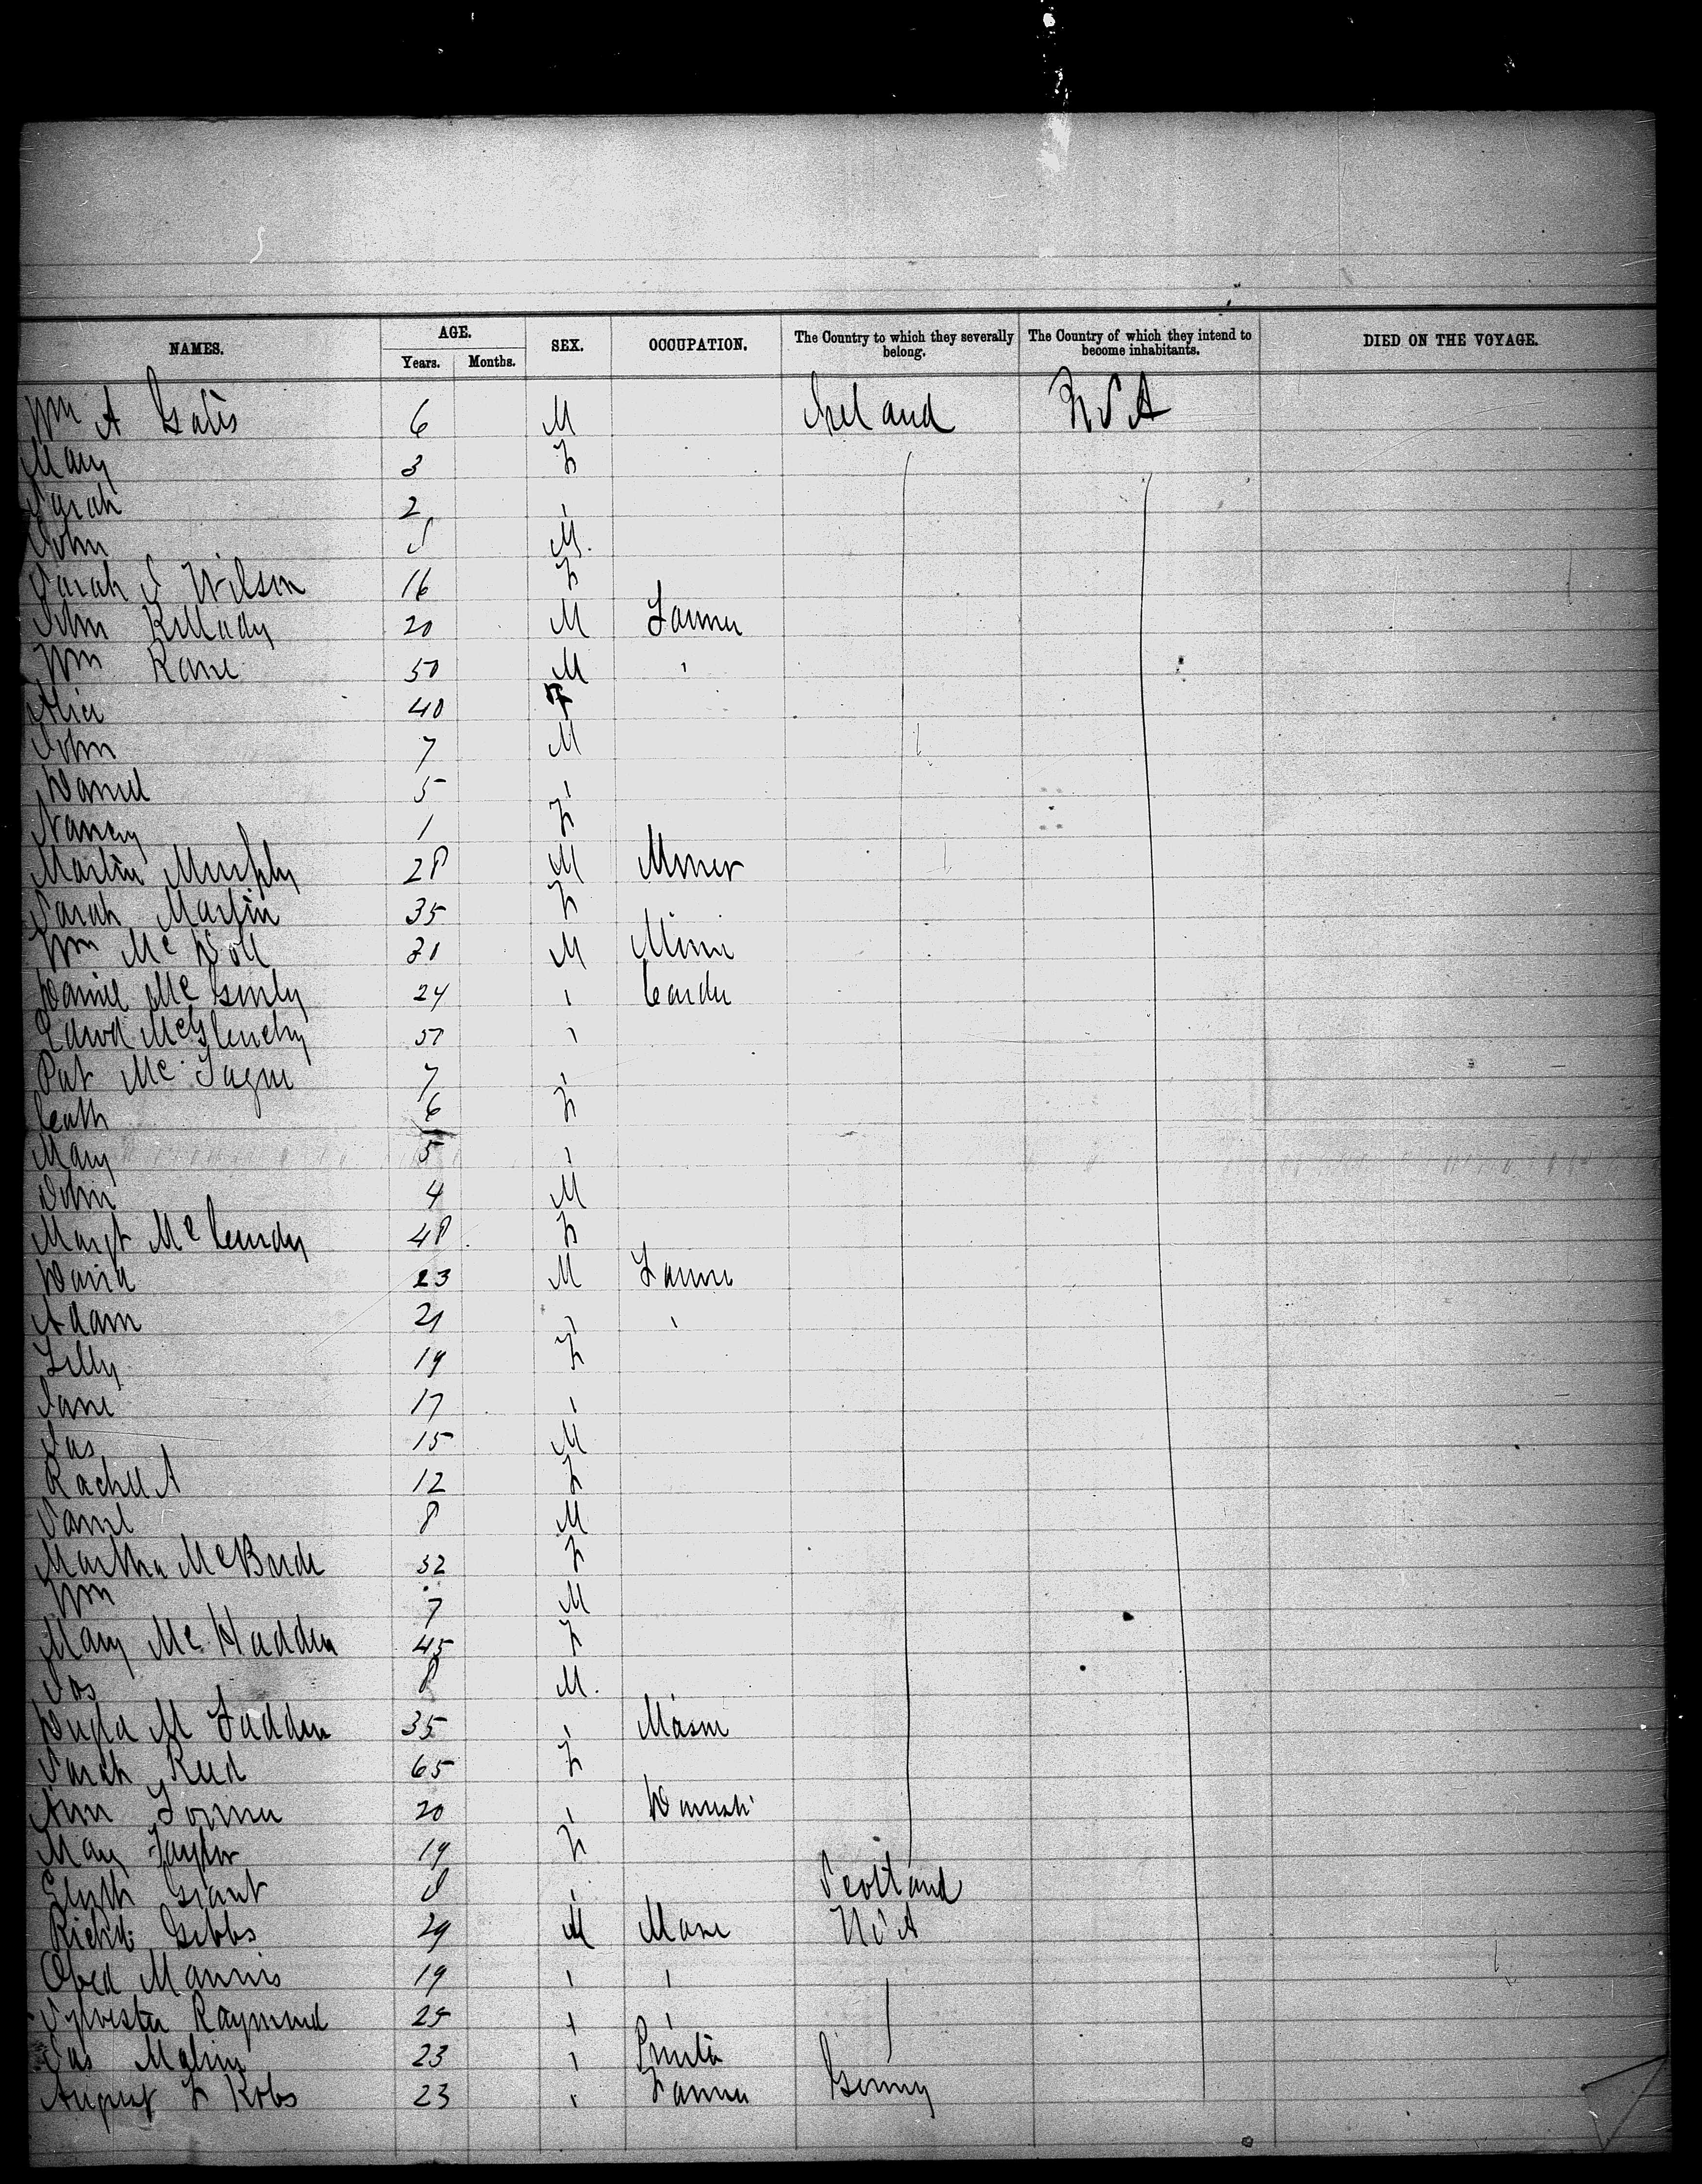 NAMES. AGE. SEX. OCCUPATION. The Country to which they severally belong. The Country of which they intend to become inhabitants. DIED ON THE VOYAGE.
Years. Months.
Wm A Gates 6 M Ireland USA
Mary 3 F
Sarah 2 "
John 8 M.
Sarah J Wilson 16 F
John Killady 20 M Farmer
Wm Kane 50 M "
Alice 40 F
John 7 M
Daniel 5 "
Nancy 1 F
Martin Murphy 28 M Miner
Sarah Martin 35 F
Wm Mc 31 M Miner
Daniel McGinly 24 " Carder
Edwd McGlenchy 50 "
Pat McTague 7 "
Cath 6 F
Mary 5 "
John 4 M
Margt McCurdy 48 F
David 23 M Farmer
Adam 21 " "
Lilly 19 F
Jane 17 "
Jas 15 M
Rachel A 12 F
Saml 8 M
Martha McBride 32 F
Wm 7 M
Mary McHadden 45 F
Jos 8 M.
M Fadden 35 " Mason
Sarah Reid 65 F
Ann 20 " Domestic
Mary Taylor 19 F
Elizth Grant 8 " Scotland
Richd. Gibbs 29 M Mason USA
Obed Mannis 19 " "
Sylvester Raymond 25 " "
Jas 23 " Printer
August F Kobs 23 " Farmer Germy